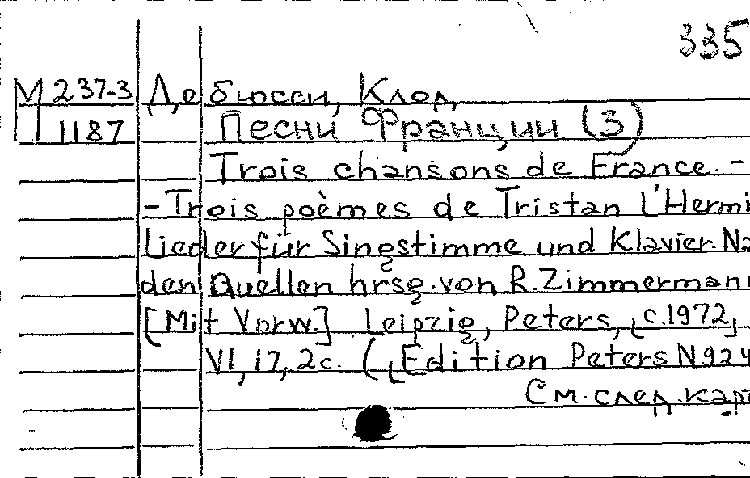 335
М 237-3 Дебюсси, Клод
П 1187 Песни Франции (3)
Trois chansons de France. -
- Trois poèmes de Tristan L'Hermi
Lieder für Singstimme und Klavier. Na
den Quellen hrsg. von R. Zimmermann
[Mit Vorw.] Leipzig, Peters, [c. 1972]
VI, 17, 2 c. ([Edition Peters N 924
См. след. кар